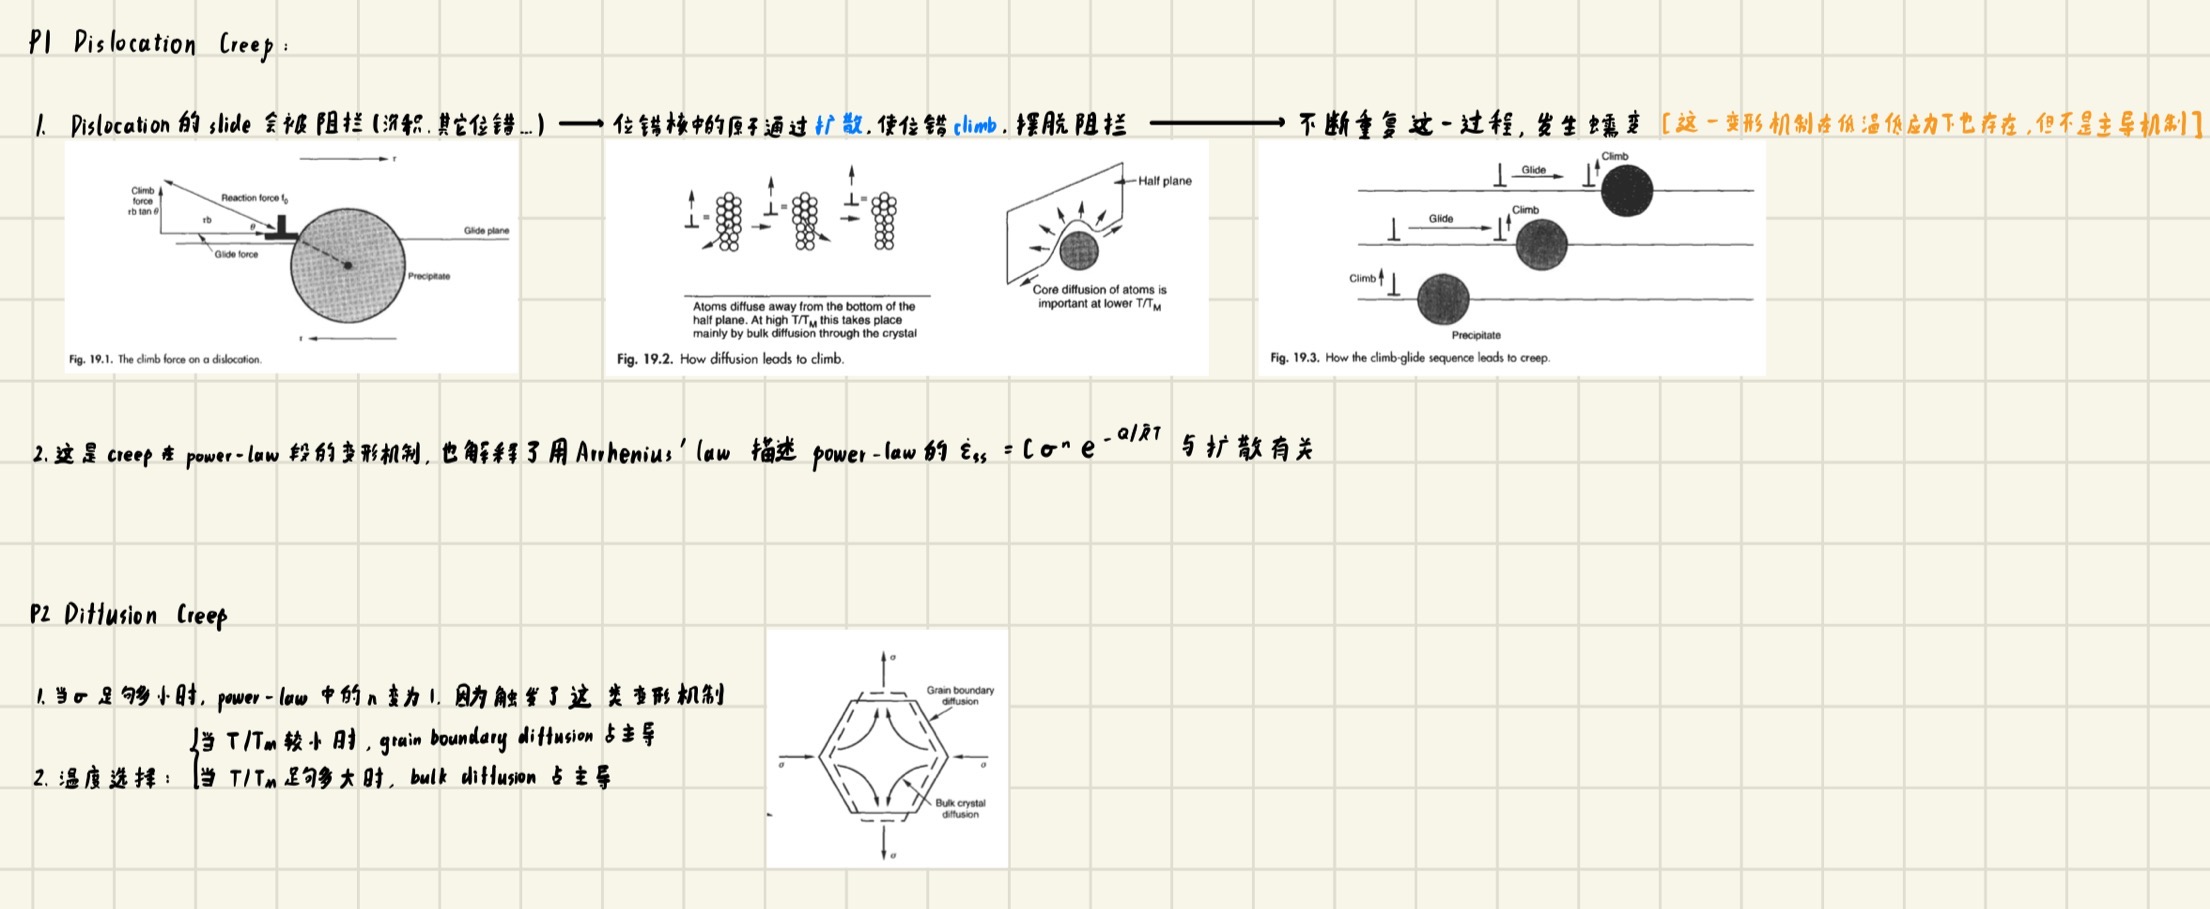 P1 Dislocation Creep:
1. Dislocation 的 slide 会被阻拦(沉积.其它位错...) → 位错核中的原子通过扩散,使位错climb.摆脱阻拦 → 不断重复这一过程,发生蠕变 [这一变形机制在低温低应力下也存在,但不是主导机制]
τ
Climb
force
τb tan θ
Reaction force f₀
τb
θ
Glide force
Glide plane
Precipitate
τ
Fig. 19.1. The climb force on a dislocation.
Half plane
Core diffusion of atoms is
important at lower T/TM
Atoms diffuse away from the bottom of the
half plane. At high T/TM this takes place
mainly by bulk diffusion through the crystal
Fig. 19.2. How diffusion leads to climb.
Glide
Climb
Glide
Climb
Climb
Precipitate
Fig. 19.3. How the climb-glide sequence leads to creep.
2. 这是 creep 在 power-law 段的变形机制,也解释了用 Arrhenius' law 描述 power-law 的 ε̇ss = Cσⁿ e^-Q/R̄T 与扩散有关
P2 Diffusion Creep
1. 当σ足够小时, power-law 中的 n 变为 1. 因为触发了这类变形机制
当 T/Tm 较小时, grain boundary diffusion 占主导
2. 温度选择:
当 T/Tm 足够大时, bulk diffusion 占主导
σ
Grain boundary
diffusion
σ
σ
Bulk crystal
diffusion
σ